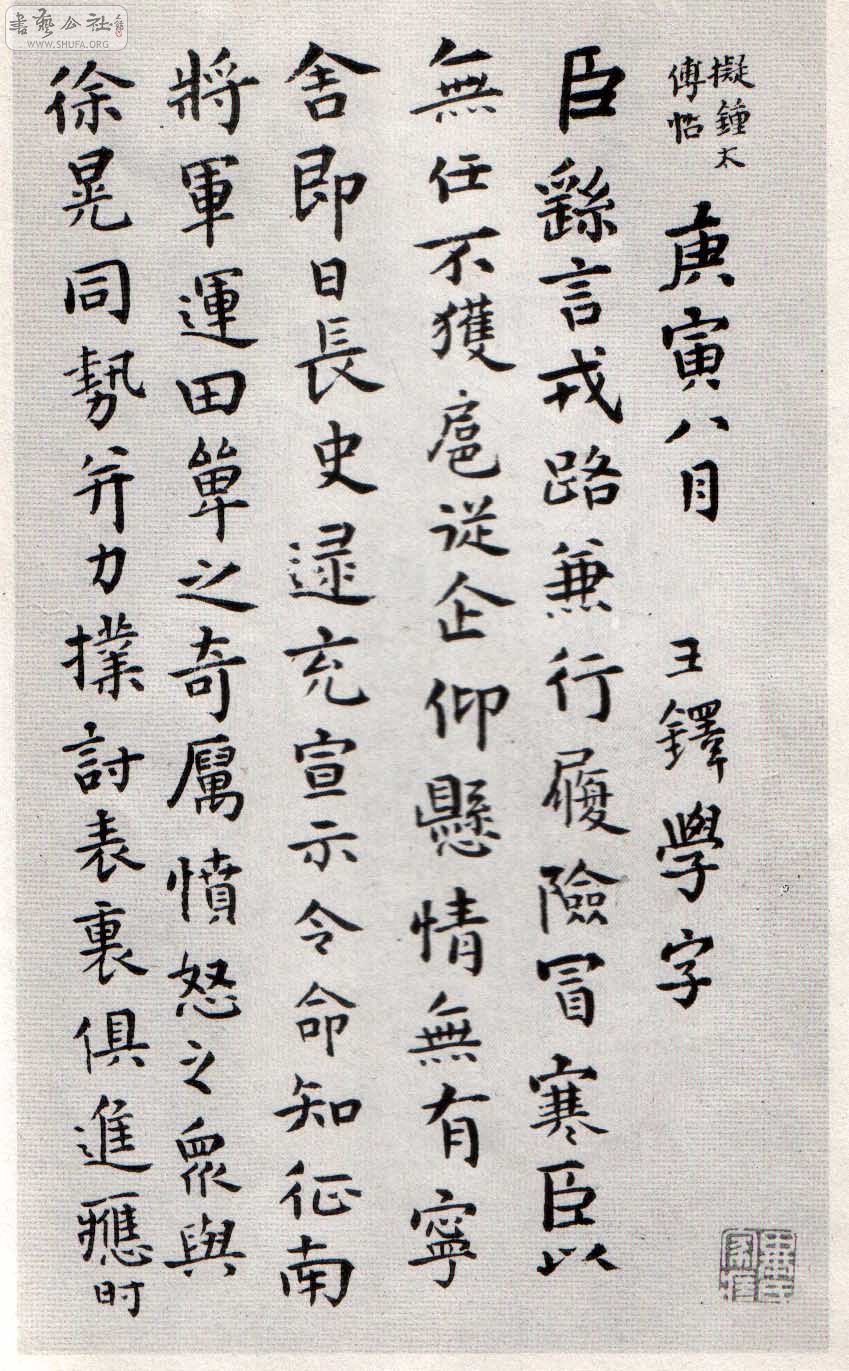 書藝公社
WWW.SHUFA.ORG
擬鍾太
傅帖
庚寅八月 王鐸學字
臣繇言戎路兼行履險冒寒臣以
無任不獲扈從企仰懸情無有寧
舍即日長史逯充宣示令命知征南
將軍運田單之奇厲憤怒之眾與
徐晃同勢并力撲討表裏俱進應時